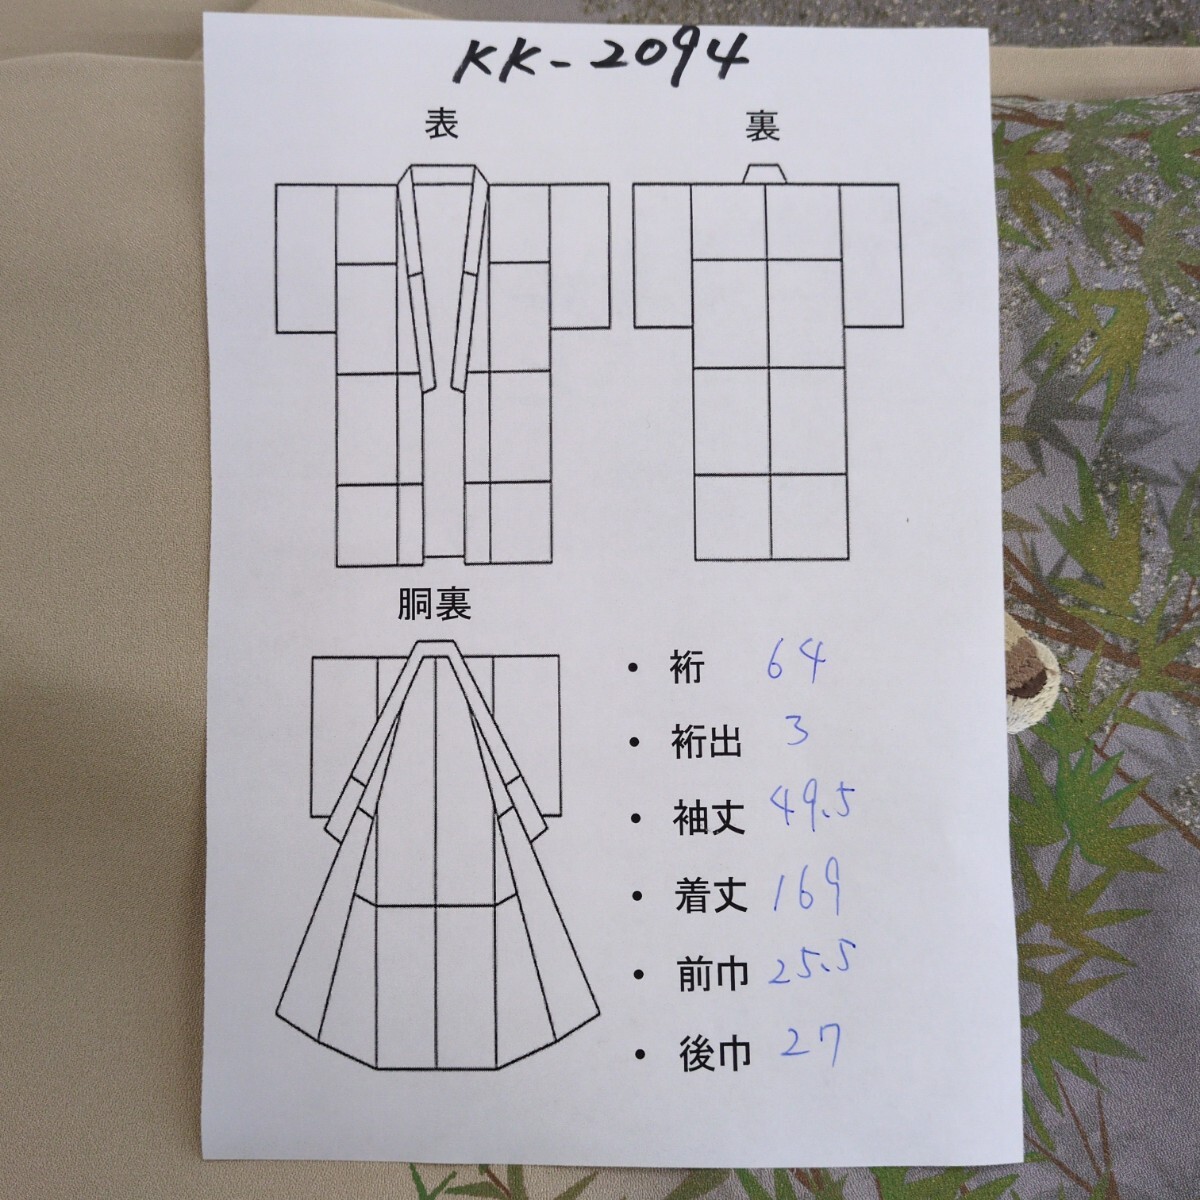 KK-2094
表 裏
胴裏
・裄 64
・裄出 3
・袖丈 49.5
・着丈 169
・前巾 25.5
・後巾 27